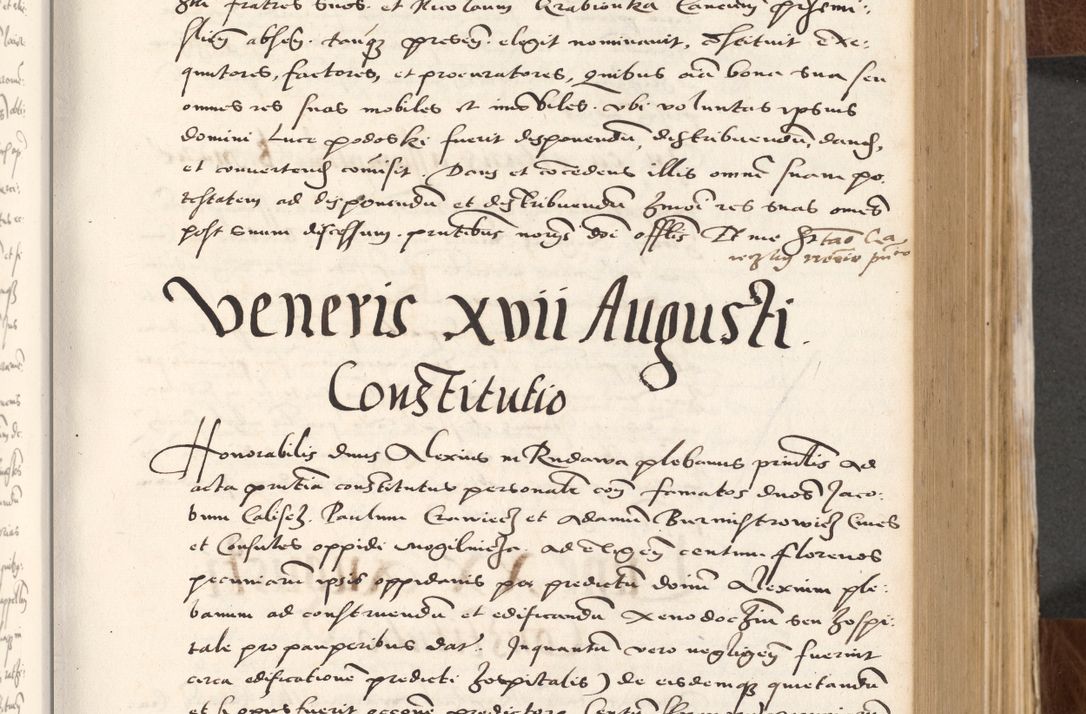 fratres suos et Nicolaum Grabionka Cancum
slien absen tanq presen elegit nominavit, constituit exe:
quutores, factores, et procuratores, Quibus oia bona sua seu
omnes res suas mobiles et imobiles ubi voluntas ipsius
domini Luce podoski fuerit disponendu, distribuendu, dand,
et convertend comisit. Dans et cocedens illis omne suam po,
testatem ad disponendu et distribuendu res suas omes
post suum discessum. pntibus
Veneris xvii Augusti.
Constitutio
Honorabilis dnus Alexius in Rudawa plebanus ad
acta constitutus personalr famatos duos Jaco:
bum Calisch. Paulum Crawiecz et Adamu Burmistrowicz Cives
et Consules oppidi Mogilnicza ad centum florenos
pecuniaru ipsis oppidanis per predictu domin Alexium ple:
banum ad construendu et edificandu xenodochiu seu hospi:
tale pro pauperibus dat. Inquantu vero negligen fuerint
circa edificatione predicti hospitalis) de eisdemq quietandu